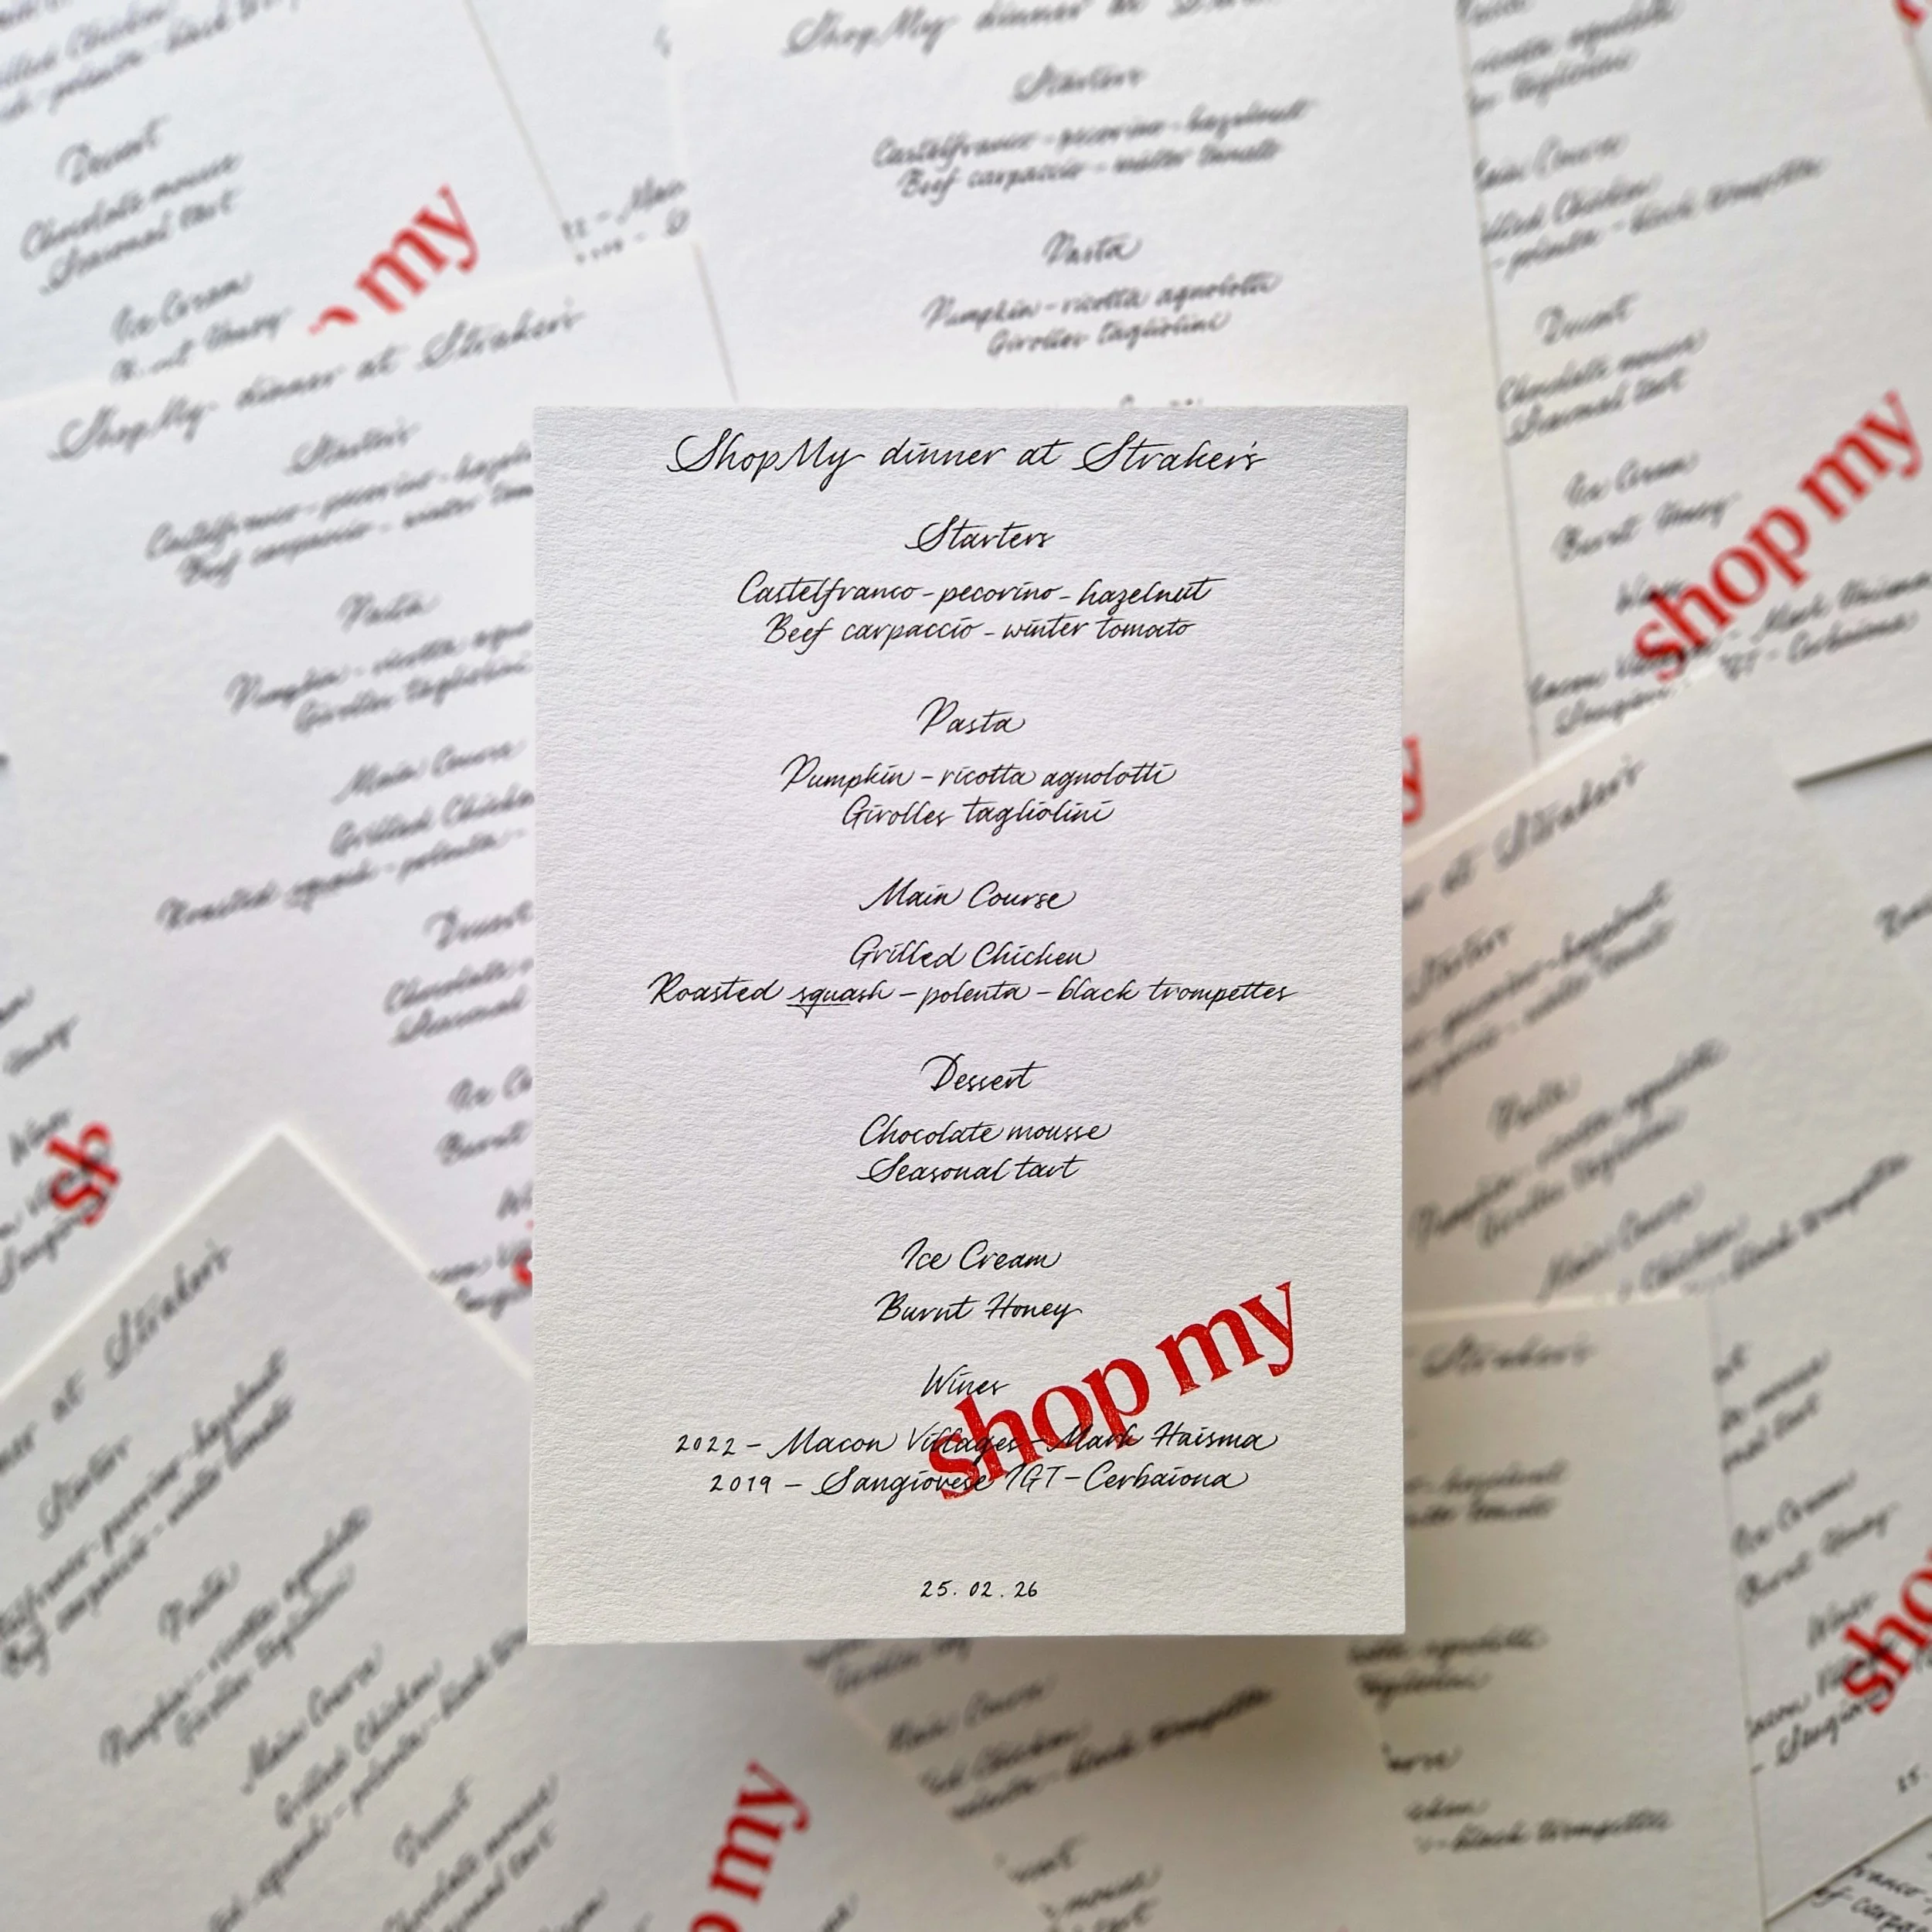 ShopMy dinner at Straker's
Starters
Castelfranco - pecorino - hazelnut
Beef carpaccio - winter tomato
Pasta
Pumpkin - ricotta agnolotti
Girolles tagliolini
Main Course
Grilled Chicken
Roasted squash - polenta - black trompettes
Dessert
Chocolate mousse
Seasonal tart
Ice Cream
Burnt Honey
Wines
2022 - Macon Villages - Mark Haisma
2019 - Sangiovese IGT - Cerbaiona
shop my
25. 02. 26